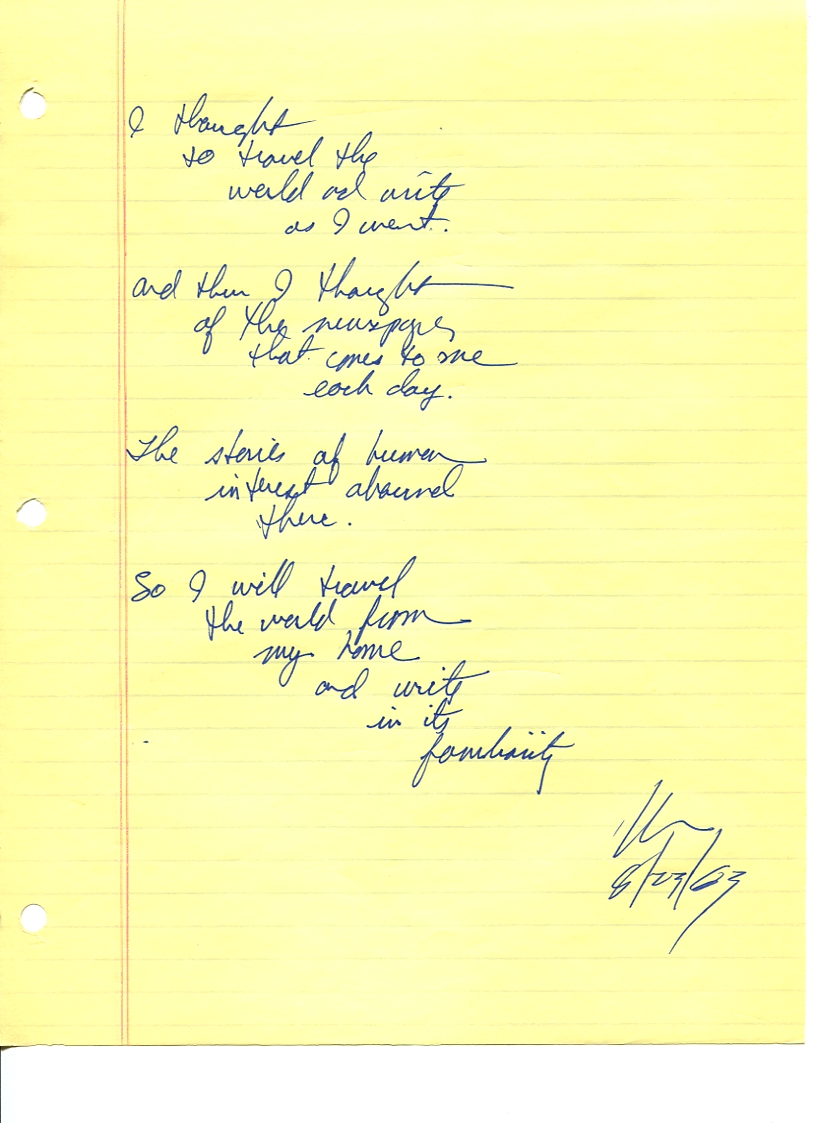 I thought
to travel the
world and write
as I went.
and then I thought
of the newspaper
that comes to me
each day.
The stories of human
interest abound
there.
So I will travel
the world from
my home
and write
in its
familiarity
8/23/03